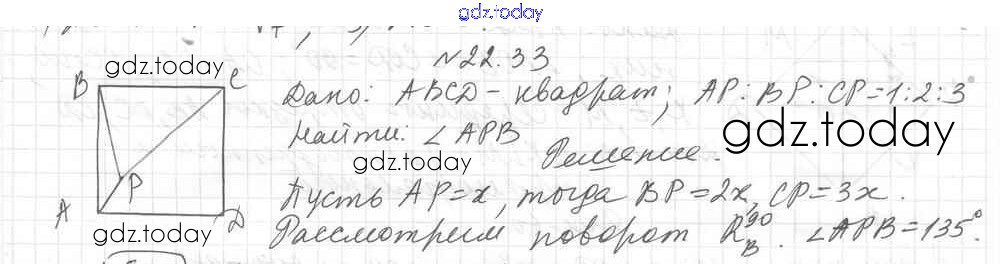 gdz.today
№22.33
gdz.today
B C
Дано: ABCD - квадрат; AP:BP:CP=1:2:3
Найти: ∠APB
gdz.today
gdz.today
Решение.
P
Пусть AP=x, тогда BP=2x, CP=3x.
A D
gdz.today
Рассмотрим поворот R_B^90. ∠APB=135°.